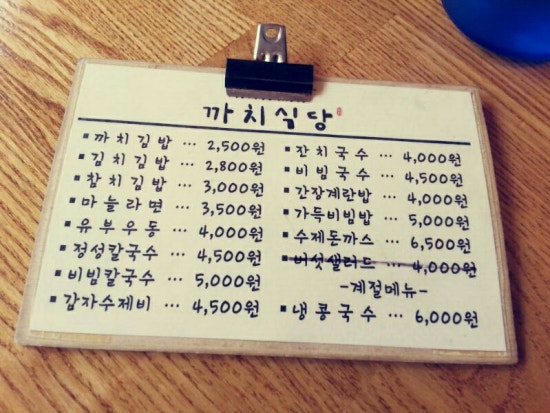 까치식당
▪까치김밥 ... 2,500원
▪김치김밥 ... 2,800원
▪참치김밥 ... 3,000원
▪마늘라면 ... 3,500원
▪유부우동 ... 4,000원
▪정성칼국수 ... 4,500원
▪비빔칼국수 ... 5,000원
▪감자수제비 ... 4,500원
▪잔치국수 ... 4,000원
▪비빔국수 ... 4,500원
▪간장계란밥 ... 4,000원
▪가득비빔밥 ... 5,000원
▪수제돈까스 ... 6,500원
▪버섯샐러드 ... 4,000원
-계절메뉴-
▪냉콩국수 ... 6,000원